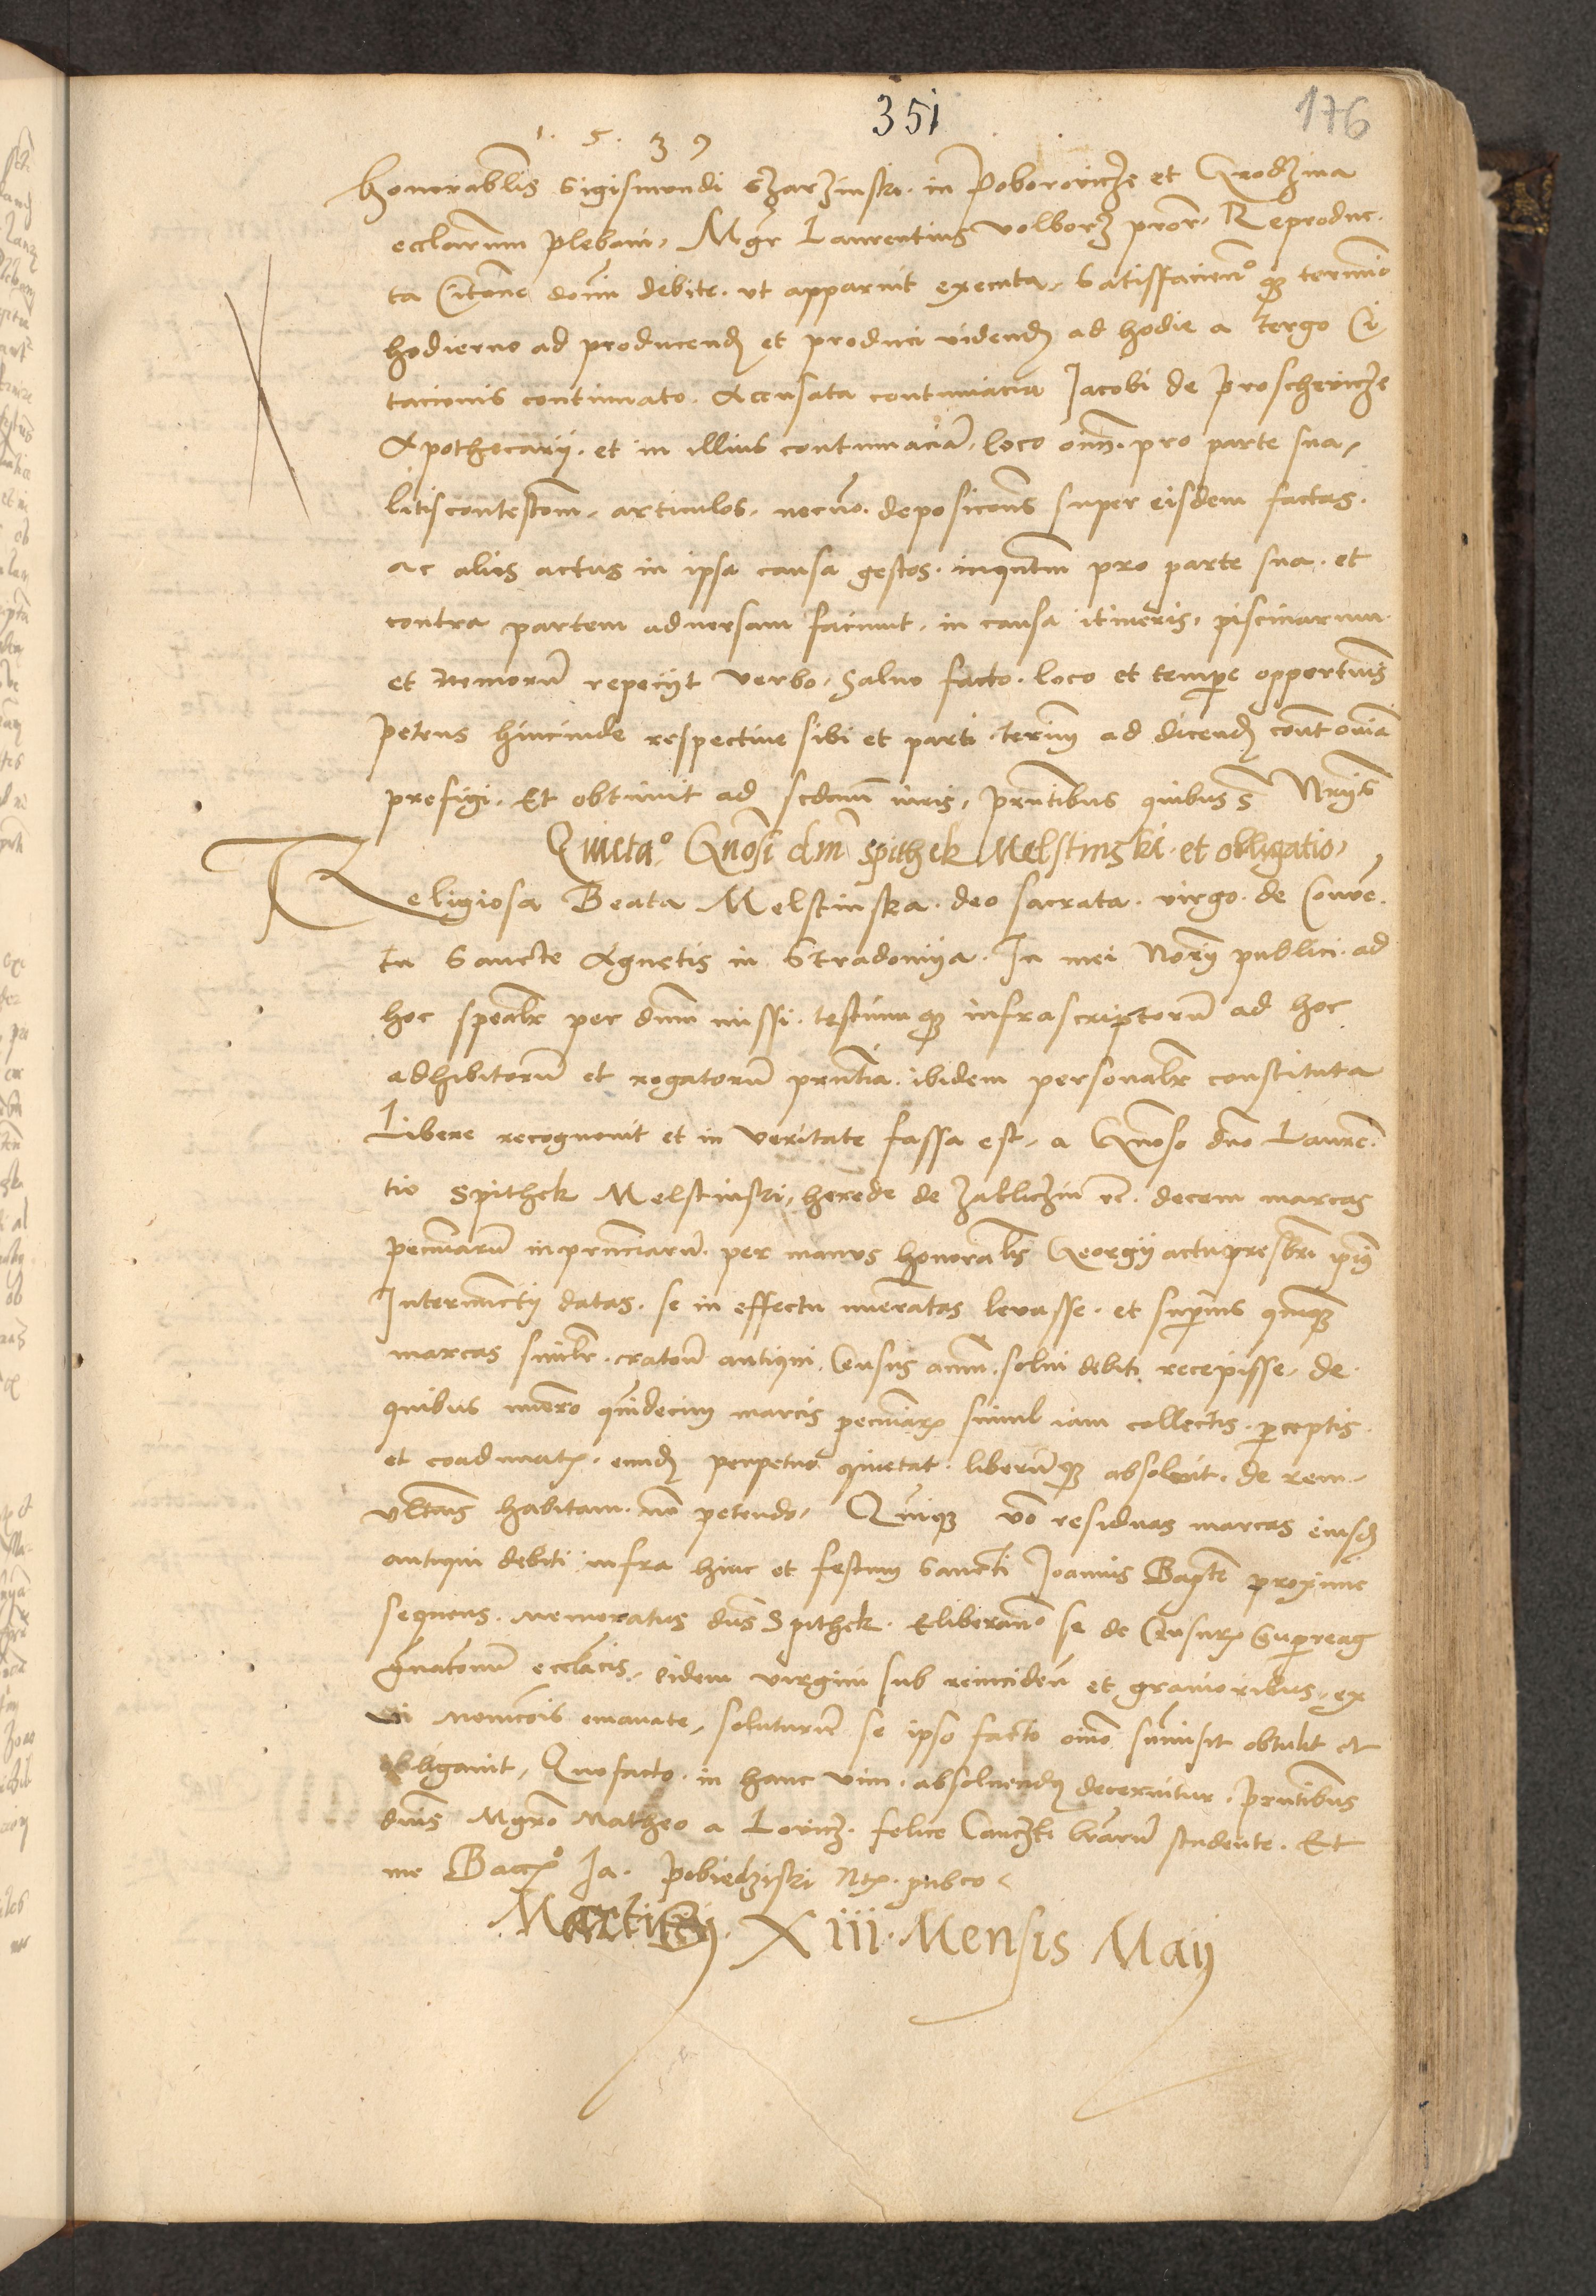 351
176
1. 5. 3 9
honorablis Sigismondi Gzarzinski in Poborovicze et Grodzina
ecclarum plebani, Mgr Laurentius Volborz pror. Reproduc
ta Citone domi debite ut apparuit executa, Satisfaciendo q3 termino
hodierno ad producend et produci vidend ad hodie a tergo Ci
tacionis continuato. Accusata contumacia Jacobi de Proschevicze
Apothecarij. et in illius contumacia. loco oim. pro parte sua,
litiscontestacom, articulos, necno. deposicoes super eisdem factas.
ac alios actus in ipsa causa gestos. inqntm pro parte sua. et
contra partem adversam faciunt. in causa itineris, piscinarum
et Nemoru repecijt verbo, Salvo facto. loco et tempe opportunis
petens hincinde respective sibi et parti terim ad dicend cont omia
prefigi. Et obtinuit ad scdam iuris, pntibus quibus s Nrijs
Quieta.o Gnosi dm Spithek Melstinski et obligatio,
Religiosa Beata Melstinska. deo sacrata. virgo. de Conve
tu Sancte Agnetis in Stradomija. In mei Norij publici. ad
hoc spealr per dnm missi. testium q3 infrascriptoru ad hoc
adhibitoru et rogatoru pntia. ibidem personalr constituta
Libere recognovit et in veritate fassa est, a Gnoso dno Lauren
tio Spithek Melstinski, herede de Zakliczin etc. decem marcas
pecuniaru inpnciaru. per manus honorablis Georgij actu presbri ipius
Internunctij datas. se in effectu numeratas levasse. et superius quinq3
marcas similr. cratoru antiqui Census annu. solvi debiti recepisse, de
quibus numero quindecim marcis pecuniar simul iam collectis. perceptis.
et coadunat. eund perpetuo quietat. liberumq3 absolvit. de rem
ultoris habitam. no petendo, Quinq3 vo residuas marcas eiusd
antiqui debiti infra hinc et festum Sancti Joannis Bapte proxime
sequens. memoratus dns Spithek. Eliberando se de Censur Superag
gravatonu ecclacis, eidem virgini sub reinciden et gravioribus, ex
vi monicois emanate, soluturu se ipso facto oino summisit obtulit et
obligavit, Quofacto. in hanc vim. absolvendus decernitur. Pntibus
dnis Mgro Matheo a Lovicz. felice Canczki braru studente. Et
me Bacco Ja. Pobiedziski Nt. pubco
Martij XIII. Mensis Maij